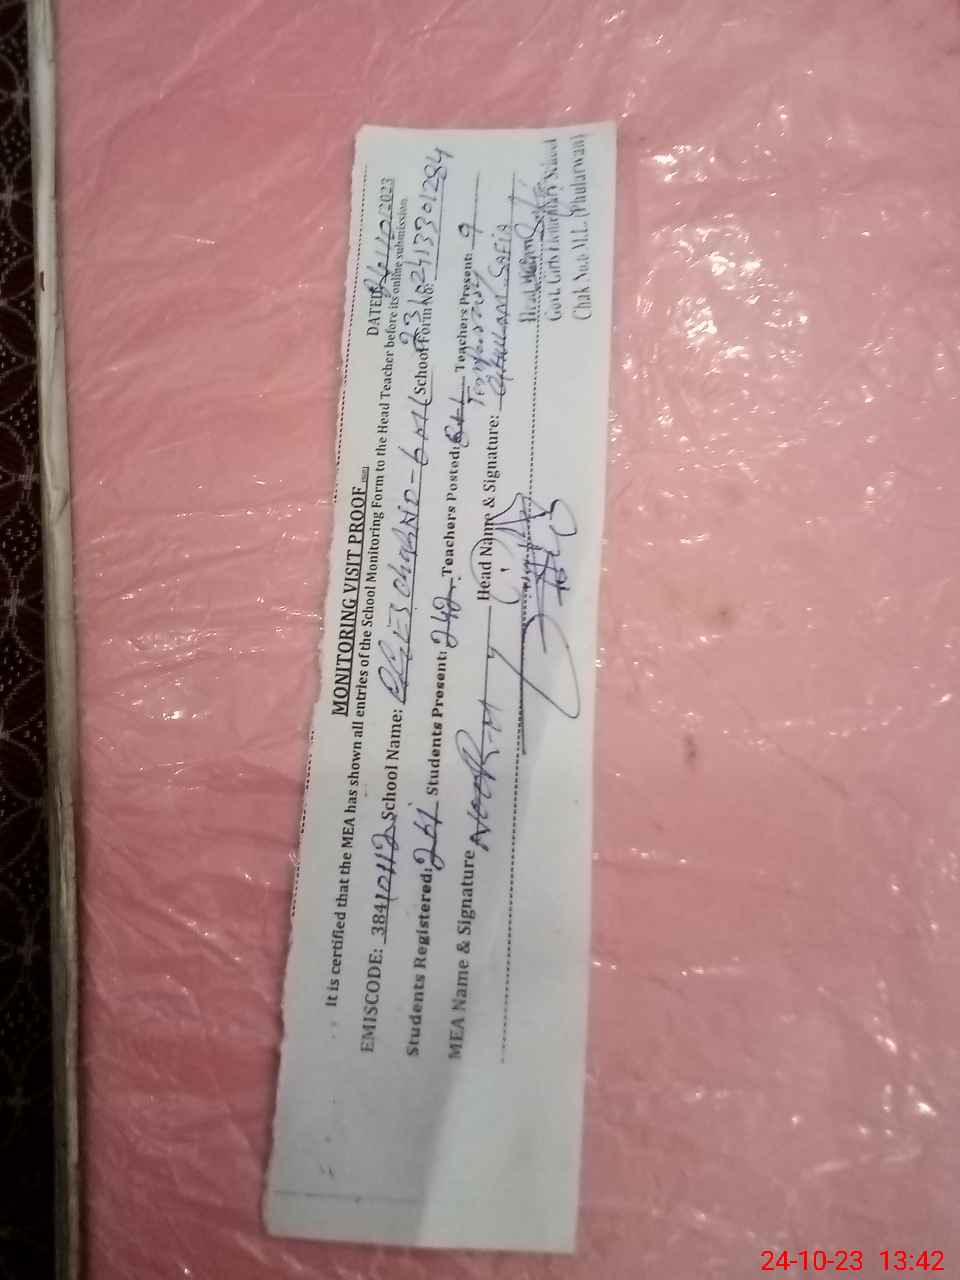 MONITORING VISIT PROOF
DATED /10/2023
It is certified that the MEA has shown all entries of the School Monitoring Form to the Head Teacher before its online submission.
EMISCODE: 38410112 School Name: GGES Chak NO-6 ML School Form No:
Students Registered: 261 Students Present: 242 Teachers Posted: 8+1 Teachers Present: 9
Temporary
MEA Name & Signature Head Name & Signature: GHULAM SAFIA
Govt. Girls Elementary School
Chak No.6 M.L. (Phularwan)
24-10-23 13:42